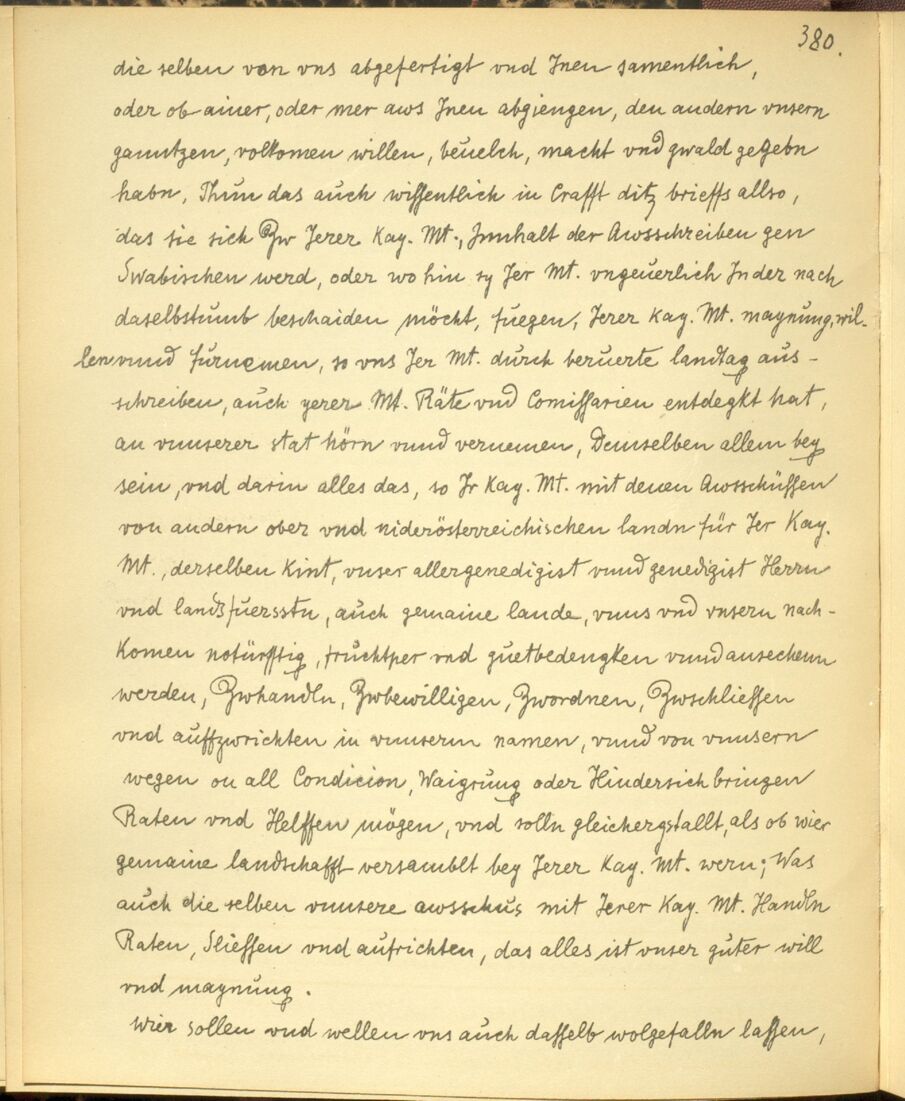 380.
die selben von vns abgefertigt vnd Inen samentlich,
oder ob ainer, oder mer aws Inen abgiengen, den andern vnsern
ganntzen, volkomen willen, beuelch, macht vnd gwald gegebn
habn, Thun das auch wissentlich in Crafft ditz brieffs allso,
das sie sich Zw Jerer Kay. Mt., Innhalt der Awsschreiben gen
Swabischen werd, oder wo hin sy Jer Mt. vngeuerlich Inder nach
daselbstumb beschaiden möcht, fuegen, Jerer Kay. Mt. maynung, wil-
len vnnd furnemen, so vns Jer Mt. durch beruerte landtag aus-
schreiben, auch yerer Mt. Räte vnd Comissarien entdegkt hat,
an vnnserer stat hörn vnnd vernemen, Demselben allem bey
sein, vnd darin alles das, so Ir Kay. Mt. mit denen Awsschüssen
von andern ober vnd niderösterreichischen landn für Jer Kay.
Mt., derselben Kint, vnser allergenedigist vnnd genedigist Herrn
vnd landsfuersstn, auch gemaine lande, vnns vnd vnsern nach-
komen notürfftig, fruchtper vnd guetbedengken vnnd ansechenn
werden, Zwhandln, Zwbewilligen, Zwordnen, Zwschliessen
vnd auffzwrichten in vnnserm namen, vnnd von vnnsern
wegen on all Condicion, Waigrung oder Hindersich bringen
Raten vnd Helffen mögen, vnd solln gleichergstallt, als ob wier
gemaine landschafft versamblt bey Jerer Kay. Mt. wern; Was
auch die selben vnnsere awsschus mit Jerer Kay. Mt. Handln
Raten, Sliessen vnd aufrichten, das alles ist vnser guter will
vnd maynung.
Wier sollen vnd wellen vns auch dasselb wolgefalln lassen,